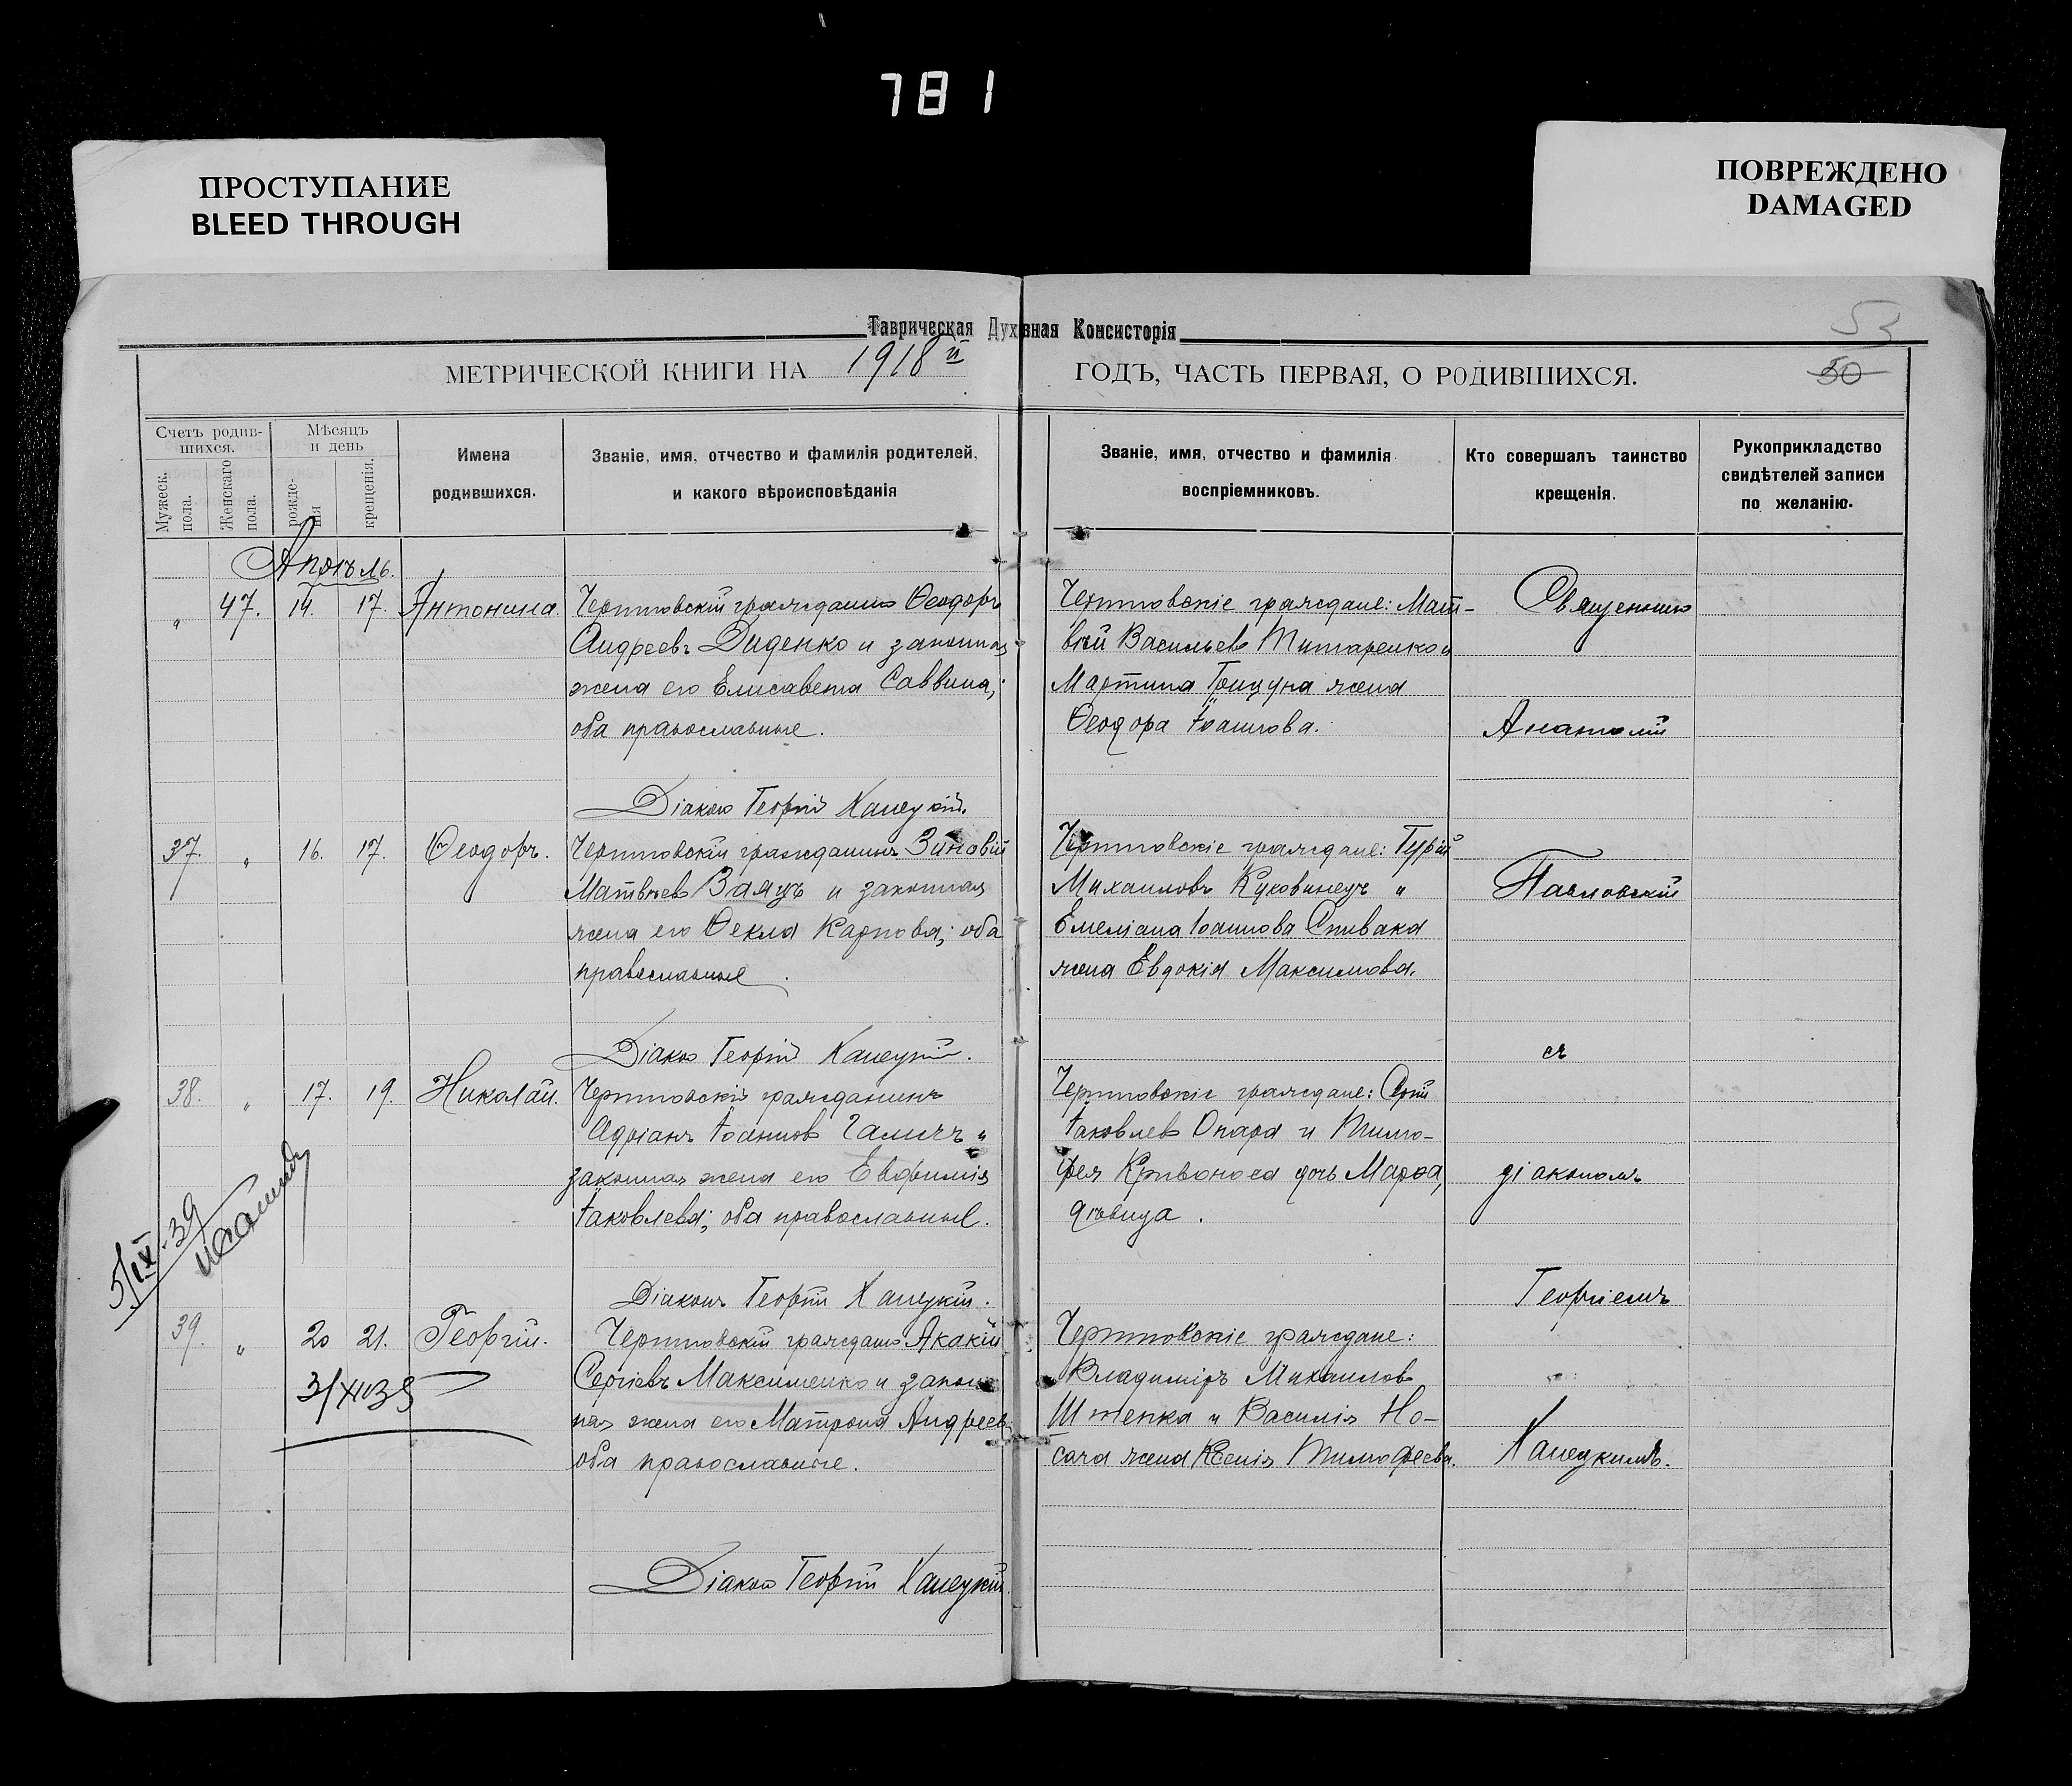 781
ПРОСТУПАНИЕ
BLEED THROUGH
ПОВРЕЖДЕНО
DAMAGED
Таврическая Духовная Консисторія
53
50
МЕТРИЧЕСКОЙ КНИГИ НА 1918й ГОДЪ, ЧАСТЬ ПЕРВАЯ, О РОДИВШИХСЯ.
Счетъ родив-
шихся.
Мужеск.
пола.
Женскаго
пола.
Мѣсяцъ
и день
рожде-
нія
крещенія.
Имена
родившихся.
Званіе, имя, отчество и фамилія родителей,
и какого вѣроисповѣданія
Званіе, имя, отчество и фамилія
воспріемниковъ.
Кто совершалъ таинство
крещенія.
Рукоприкладство
свидѣтелей записи
по желанію.
Апрѣль.
" 47. 14. 17. Антонина.
гражданинъ Ѳеодоръ
Андреевъ Диденко и законная
жена его Елисавета Саввина;
оба православные.
Діаконъ Георгій Ханецкій.
граждане: Мат-
вѣй Васильевъ Титаренко и
Мартина Грицуна жена
Ѳеодора Іоаннова.
37. " 16. 17. Ѳеодоръ.
гражданинъ Зиновій
Матвѣевъ Заяцъ и законная
жена его Ѳекла Карпова; оба
православные.
Діаконъ Георгій Ханецкій.
граждане: Гурій
Михаиловъ Куковинецъ и
Емеліана Іоаннова Спивака
жена Евдокія Максимова.
38. " 17. 19. Николай.
гражданинъ
Адріанъ Іоанновъ Галичъ и
законная жена его Евфимія
Іаковлева; оба православные.
Діаконъ Георгій Ханецкій.
граждане:
Іаковлевъ Опара и Тимо-
фея Кривоноса дочь Марфа,
дѣвица.
5/IX-39
39. " 20 21. Георгій.
3/XI 39
гражданинъ Акакій
Сергіевъ Максименко и закон-
ная жена его Матрона Андреев.
оба православные.
Діаконъ Георгій Ханецкій.
граждане:
Владиміръ Михаиловъ
Штепка и Василія Но-
сача жена Ксенія Тимофеева.
Священникъ
Анатолій
Павловскій
съ
діакономъ
Георгіемъ
Ханецкимъ.